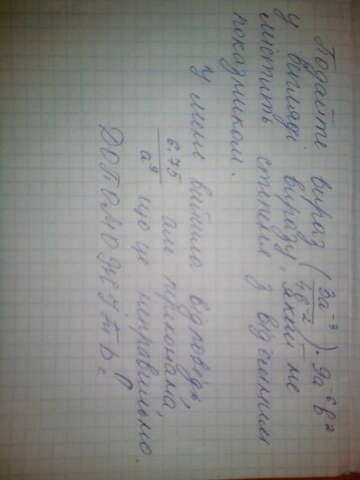 Подайте вираз (3a⁻³/4b⁻²)·9a⁻⁶b²
у вигляді виразу, який не
містить степеня з від'ємним
показником.
У мене вийшла відповідь,
6.75/a⁹ але переконана,
що це неправильно.
ДОПОМОЖІТЬ!